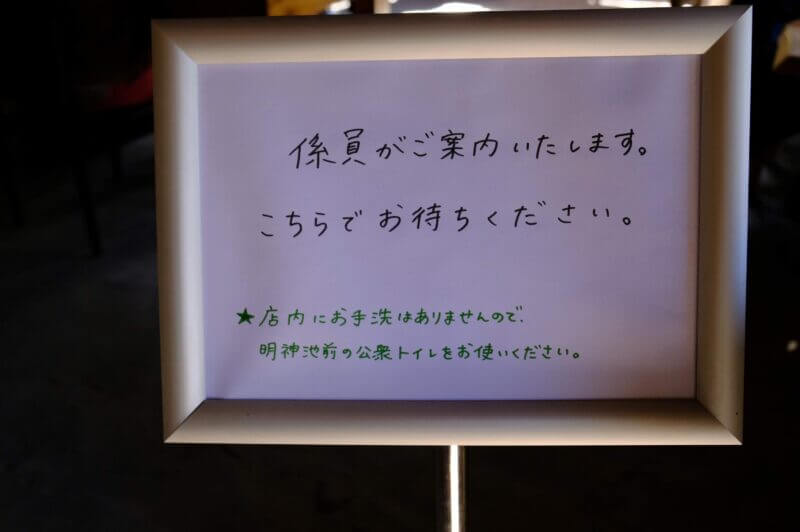 係員がご案内いたします。
こちらでお待ちください。
★店内にお手洗はありませんので、
明神池前の公衆トイレをお使いください。